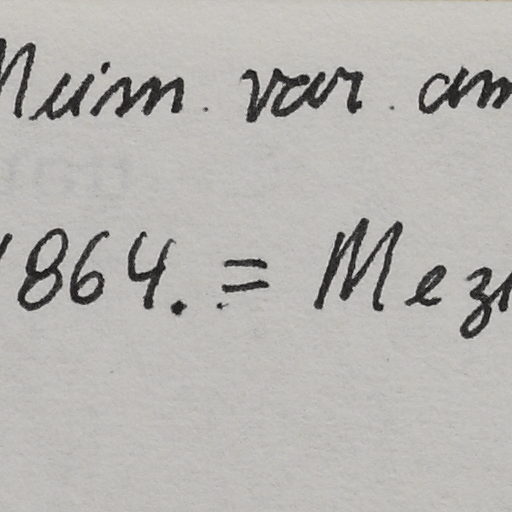 Meim. var. am
1864. = Mez